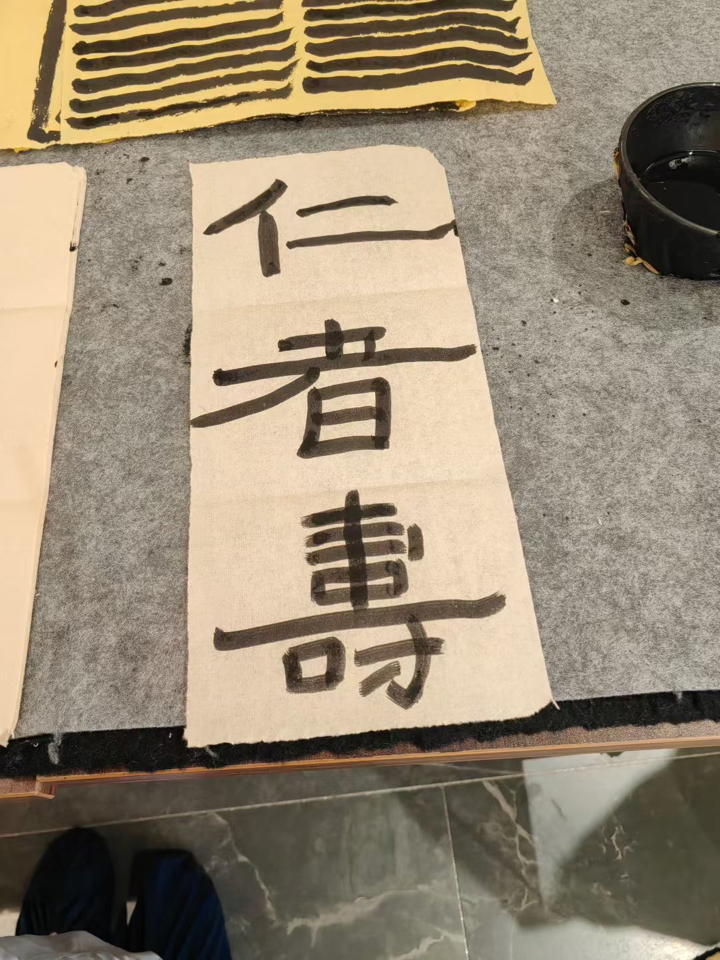 仁者壽